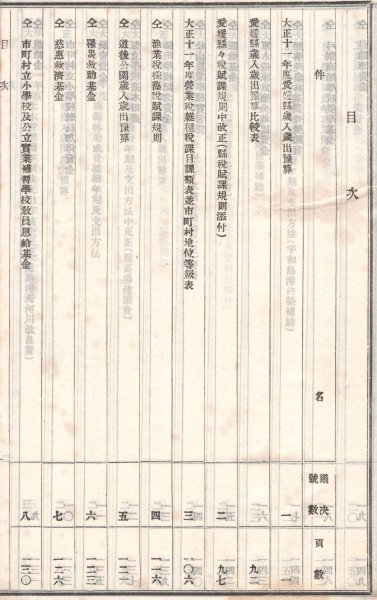 目次
件名 議決號數 頁數
大正十一年度愛媛縣歲入歲出豫算 一 一
愛媛縣歲入歲出豫算比較表 九二
愛媛縣々稅賦課規則中改正(縣稅賦課規則添付) 二 九七
大正十一年度營業稅雜種稅課目課額表並市町村地位等級表 三 一〇六
仝 漁業稅採藻稅賦課規則 四 一一六
仝 道後公園歲入歲出豫算 五 一二二
仝 罹災救助基金 六 一二三
仝 慈惠救濟基金 七 一二六
仝 市町村立小學校及公立實業補習學校敎員恩給基金 八 一三〇
目次